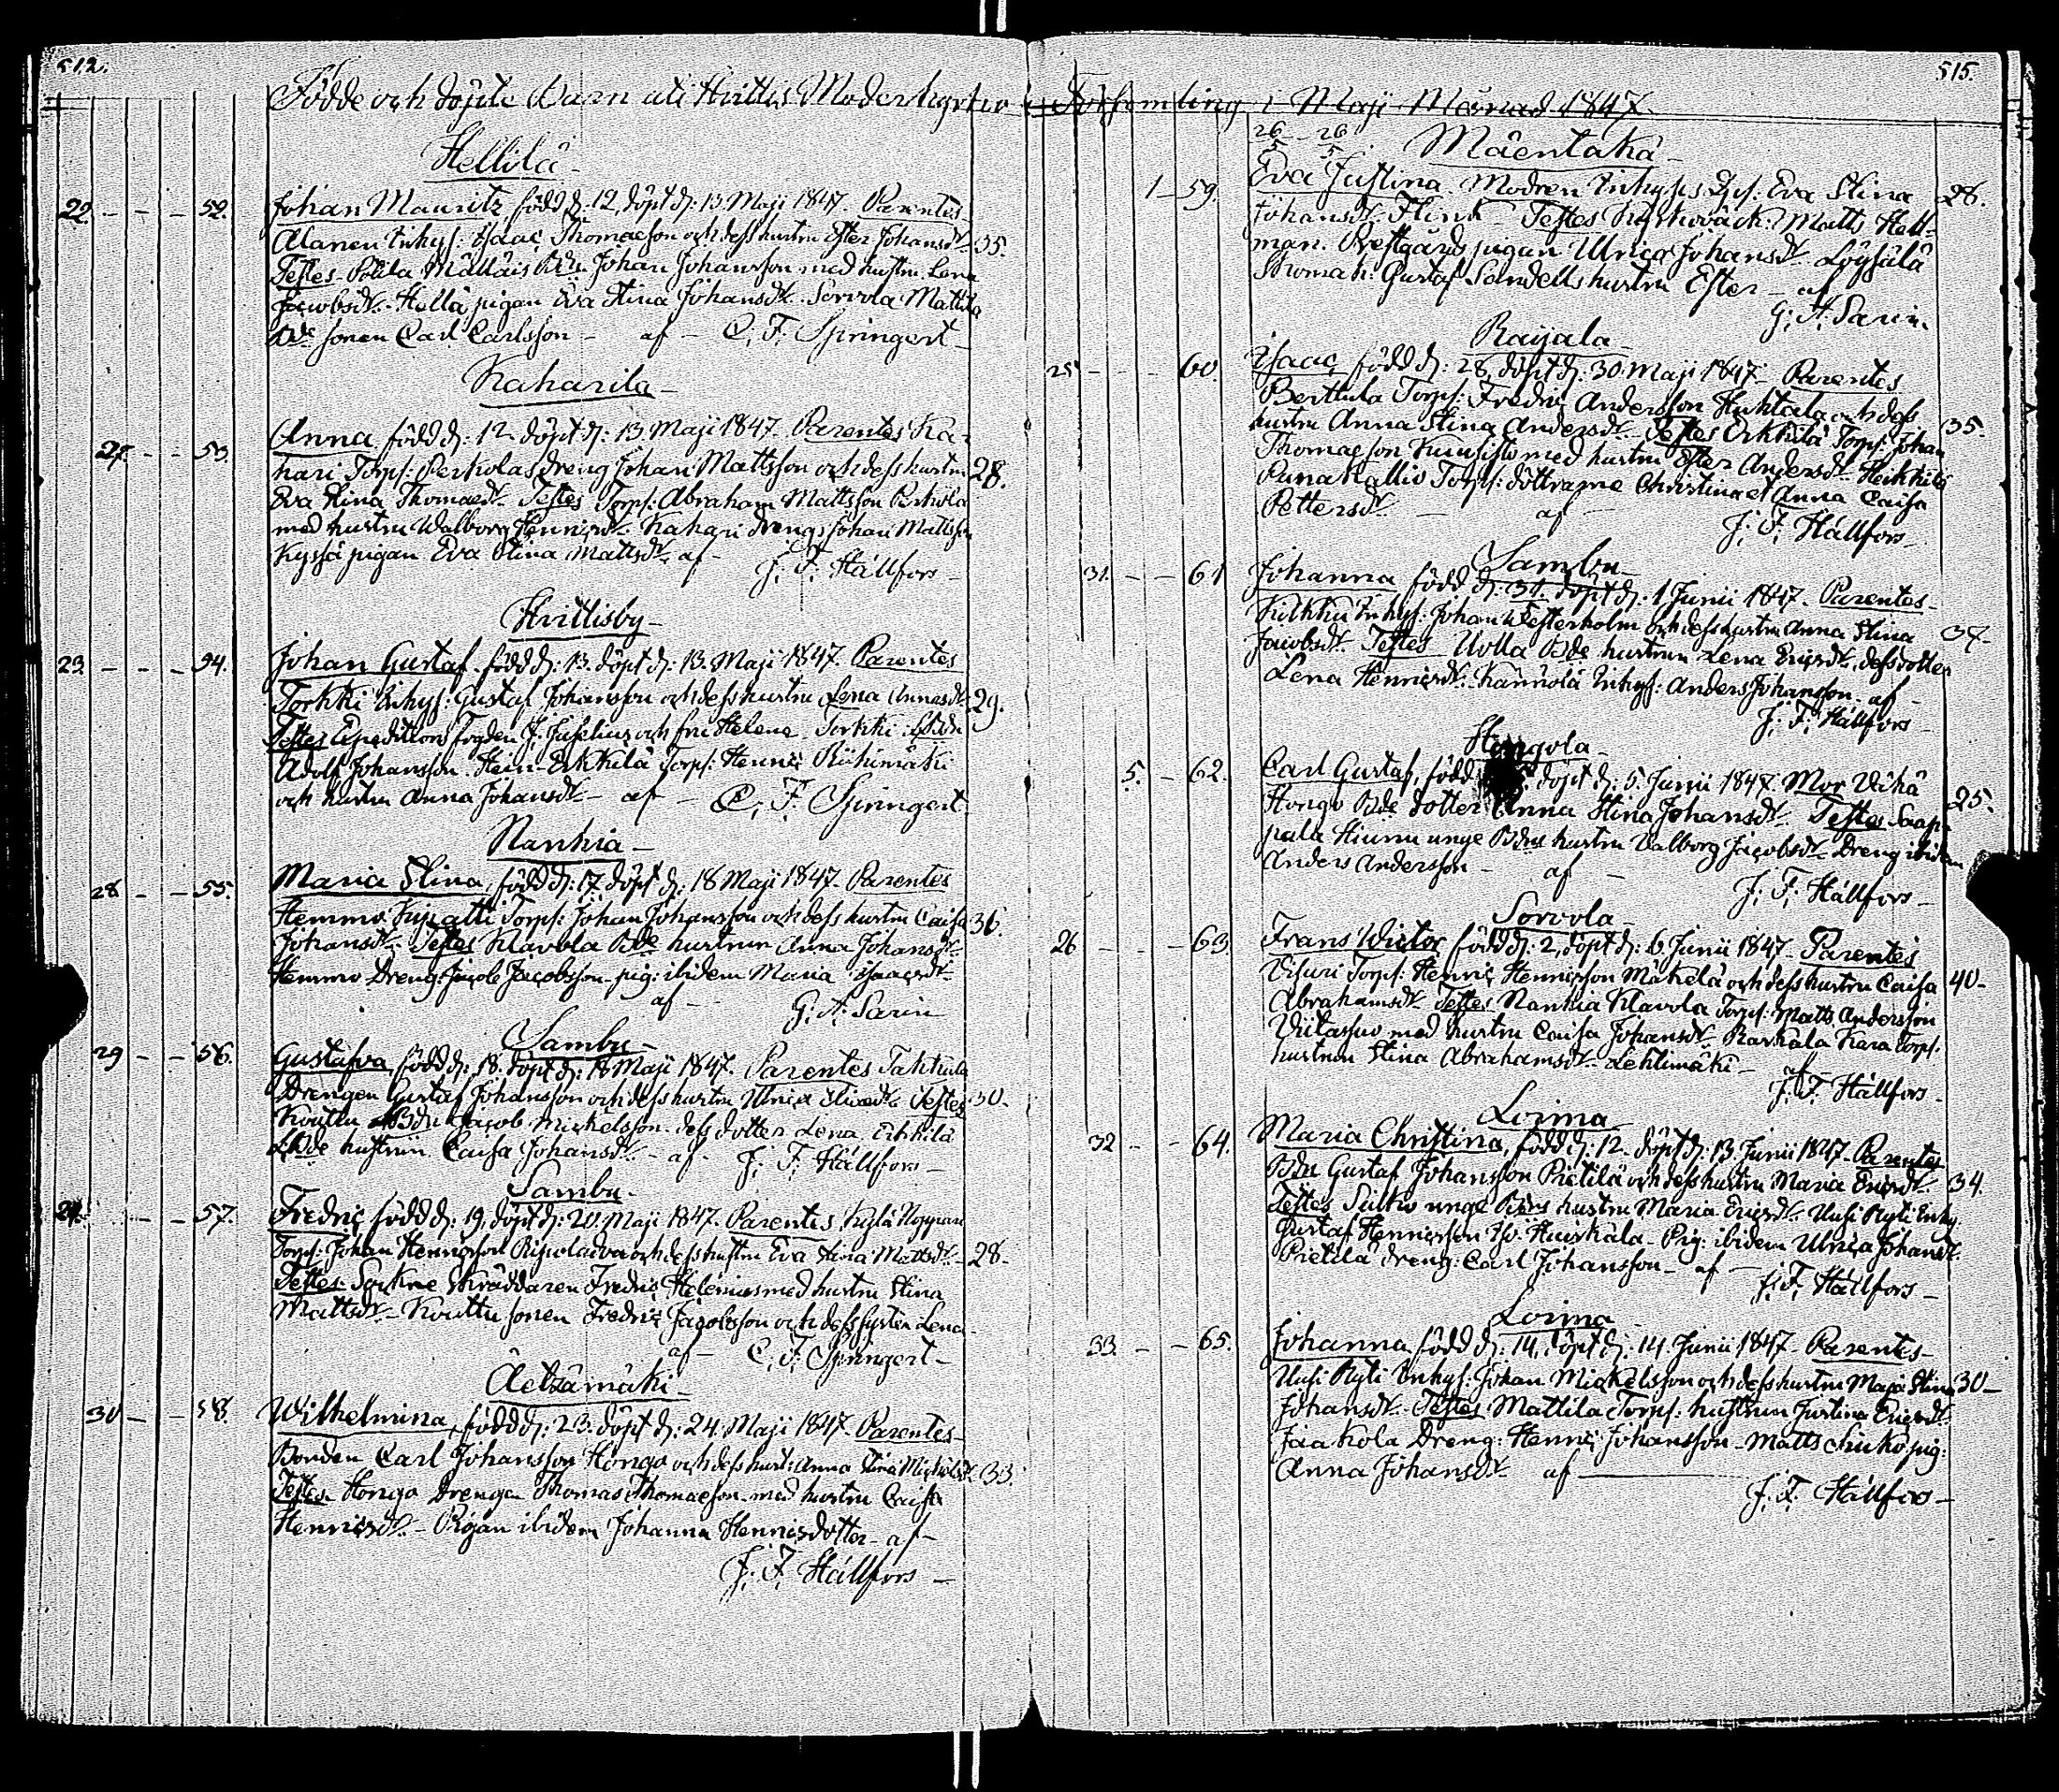 512.
Födde och döpte Barn uti Hvittis Moderkyrko
Hellilä
22. - - - 52. Johan Mauritz född d: 12, döpt d: 13. Maji 1847. Parentes
Alanen Inhys: Isaac Thomaeson och dess hustru Ester Johansdr. 35.
Testes Mälläis Bdn Johan Johansson med hustru Lena
Jacobsdr. Hellä pigan Eva Stina Johansdr. Sorvola Mattila
Bde sonen Carl Carlsson - af - C. F. Springert
Kaharila
27. - - 53. Anna född d: 12. döpt d: 13. Maji 1847. Parentes Ka-
hari Torps: Perkolas dreng Johan Mattsson och dess hustru 28.
Eva Stina Thomaedr. Testes Torps: Abraham Mattsson Perkola
med hustru Walborg Henricsdr. Kahari drengs Johan Mattsson
pigan Eva Stina Mattsdr. af -
J. F. Hällfors
Hvittisby
23. - - - 54. Johan Gustaf. född d: 13. döpt d: 13. Maji 1847. Parentes
Torkki Inhys: Gustaf Johansson och dess hustru Lena Annasdr. 29.
Testes Expeditions fogden J. Juselius och fru Helena. Torkki
Adolf Johansson. Hein-Erkkilä Torps: Henric Riihimäki
och hustru Anna Johansdr. - af - C. F. Springert
Nanhia
28 - - 55. Maria Stina, född d: 17. döpt d: 18 Maji 1847. Parentes
Hemmo Torps: Johan Johansson och dess hustru Caisa 36.
Johansdr. Testes Klavola Bde hustrun Anna Johansdr.
Hemmo Dreng: Jacob Jacobsson. pig: ibidem Maria Isaacsdr.
af - G. A. Sarin
Sambu
29 - - 56. Gustafva, född d: 18. döpt d: 18 Maji 1847. Parentes Takkula
Drengen Gustaf Johansson och dess hustru Ulrica Eliaedr. Testes 30.
Kouttu Bdn Jacob Mickelsson. dess dotter Lena Erkkilä
Bde hustrun Caisa Johansdr. - af - J. F. Hällfors
Sambu
24. - - 57. Fredric född d: 19, döpt d: 20. Maji 1847. Parentes Kylä Noppari
Torps: Johan Henricsson och dess hustru Eva Stina Mattsdr. 28.
Testes Skräddaren Fredric Helenius med hustru Stina
Mattsdr. Kouttu sonen Fredric Jacobsson och dess syster Lena
af - C. F. Springert
Äetzämäki
30 - - 58. Wilhelmina, född d: 23. döpt d: 24. Maji 1847. Parentes
Bonden Carl Johansson Hongo och dess hust: Anna Stina Michelsdr. 33.
Testes Hongo Drengen Thomas Thomaeson med hustru Caisa
Henricsdr. - Pigan ibidem Johanna Henricsdotter - af -
J. F. Hällfors
515.
Församling i Maji Månad 1847
26 - 26
5 5
Mäentaka
1 - 59. Eva Justina. Modren Inhyses Eva Stina 28.
Johansdr. Flink Testes Kyrkoväck: Matts Hell-
man. Prestgårds pigan Ulrica Johansdr. Löysälä
Gustaf Sandells hustru Ester - af
G. A. Sarin
Raijala
25 - - - 60. Isaac, född d: 28, döpt d: 30. Maji 1847. Parentes
Berttula Torps: Fredric Andersson Huhtala och dess
hustru Anna Stina Andersdr. Testes Erkkilä Torps: Johan 35.
Thomaeson Kuusisto med hustru Ester Andersdr. Heikkilä
Punakallio Torps: döttrarne Christina et Anna Caisa
Pettersdr. - af - J. F. Hällfors
Sambu
31. - - 61 Johanna född d: 31. döpt d: 1 Junii 1847. Parentes
Inhys: Johan Westerholm och dess hustru Anna Stina 37.
Jacobsdr. Testes Uolla Bde hustrun Lena Ericsdr., dess dotter
Lena Henricsdr. Kännölä Inhys: Anders Johansson - af -
J. F. Hällfors
Hongola
5. - 62. Carl Gustaf, född döpt d: 5. Junii 1847. Mor Vähä
Hongo Bde dotter Anna Stina Johansdr. Testes Saap- 25.
pala Hiumu unge Bdns hustru Valborg Jacobsdr. Dreng ibidem
Anders Andersson - af - J. F. Hällfors
Sorvola
26 - - - 63. Frans Wictor född d: 2, döpt d: 6 Junii 1847. Parentes
Visuri Torps: Henric Henricsson Mäkelä och dess hustru Caisa 40.
Abrahamsdr. Testes Nanhia Klavola Torps: Matts Andersson
Viitasuo med hustru Caisa Johansdr. Karhala Kara Torps.
hustrun Stina Abrahamsdr. Lehtimäki - af -
J. F. Hällfors
Loima
32 - - 64. Maria Christina, född d: 12. döpt d: 13. Junii 1847. Parentes
Bdn Gustaf Johansson Pietilä och dess hustru Maria Ericsdr. 34.
Testes Sulko unge Bdns hustru Maria Ericsdr. Uusi Kyti Inhy.
Gustaf Henricsson Huiskala. Pig: ibidem Ulrica Johansdr.
Pietilä dreng: Carl Johansson - af - J. F. Hällfors
Loima
33. - - 65. Johanna född d: 14, döpt d: 14. Junii 1847. Parentes
Uusi Kyti Inhys: Johan Mickelsson och dess hustru Maja Stina 30
Johansdr. Testes Mattila Torps: hustrun Justina Ericsdr.
Jaakola Dreng: Henric Johansson. Matts pig:
Anna Johansdr. af
J. F. Hällfors